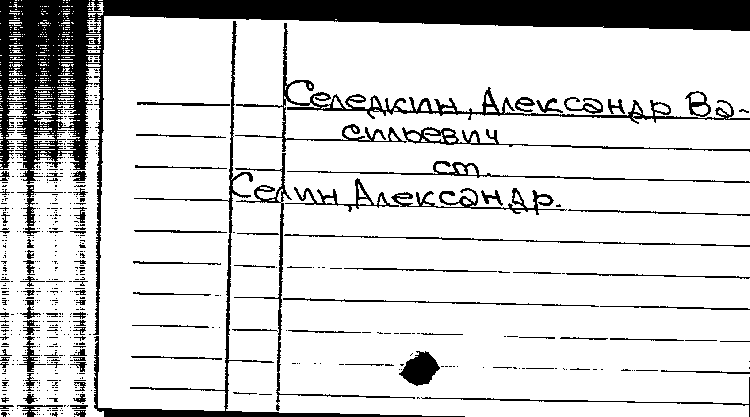 Селедкин, Александр Ва-
сильевич.
ст.
Селин, Александр.